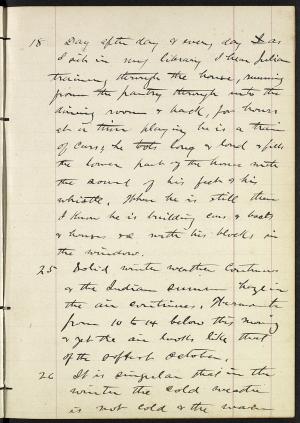 18 Day after day & every day I as
I sit in my library I hear Julian
training through the house, running
from the pantry through into the
dining room & back, for hours
at a time playing he is a train
of cars; he toots long & loud & fills
the lower part of the house with
the sound of his feet & his
whistle. When he is still then
I know he is building cars & boats
& houses &c with his blocks in
the window.
25 Solid winter weather continues
& the Indian summer haze in
the air continues. Mercury
from 10 to 14 below this morning
& yet the air looks like that
of the soft October.
26 It is singular that in the
winter the cold weather
is not cold & the warm